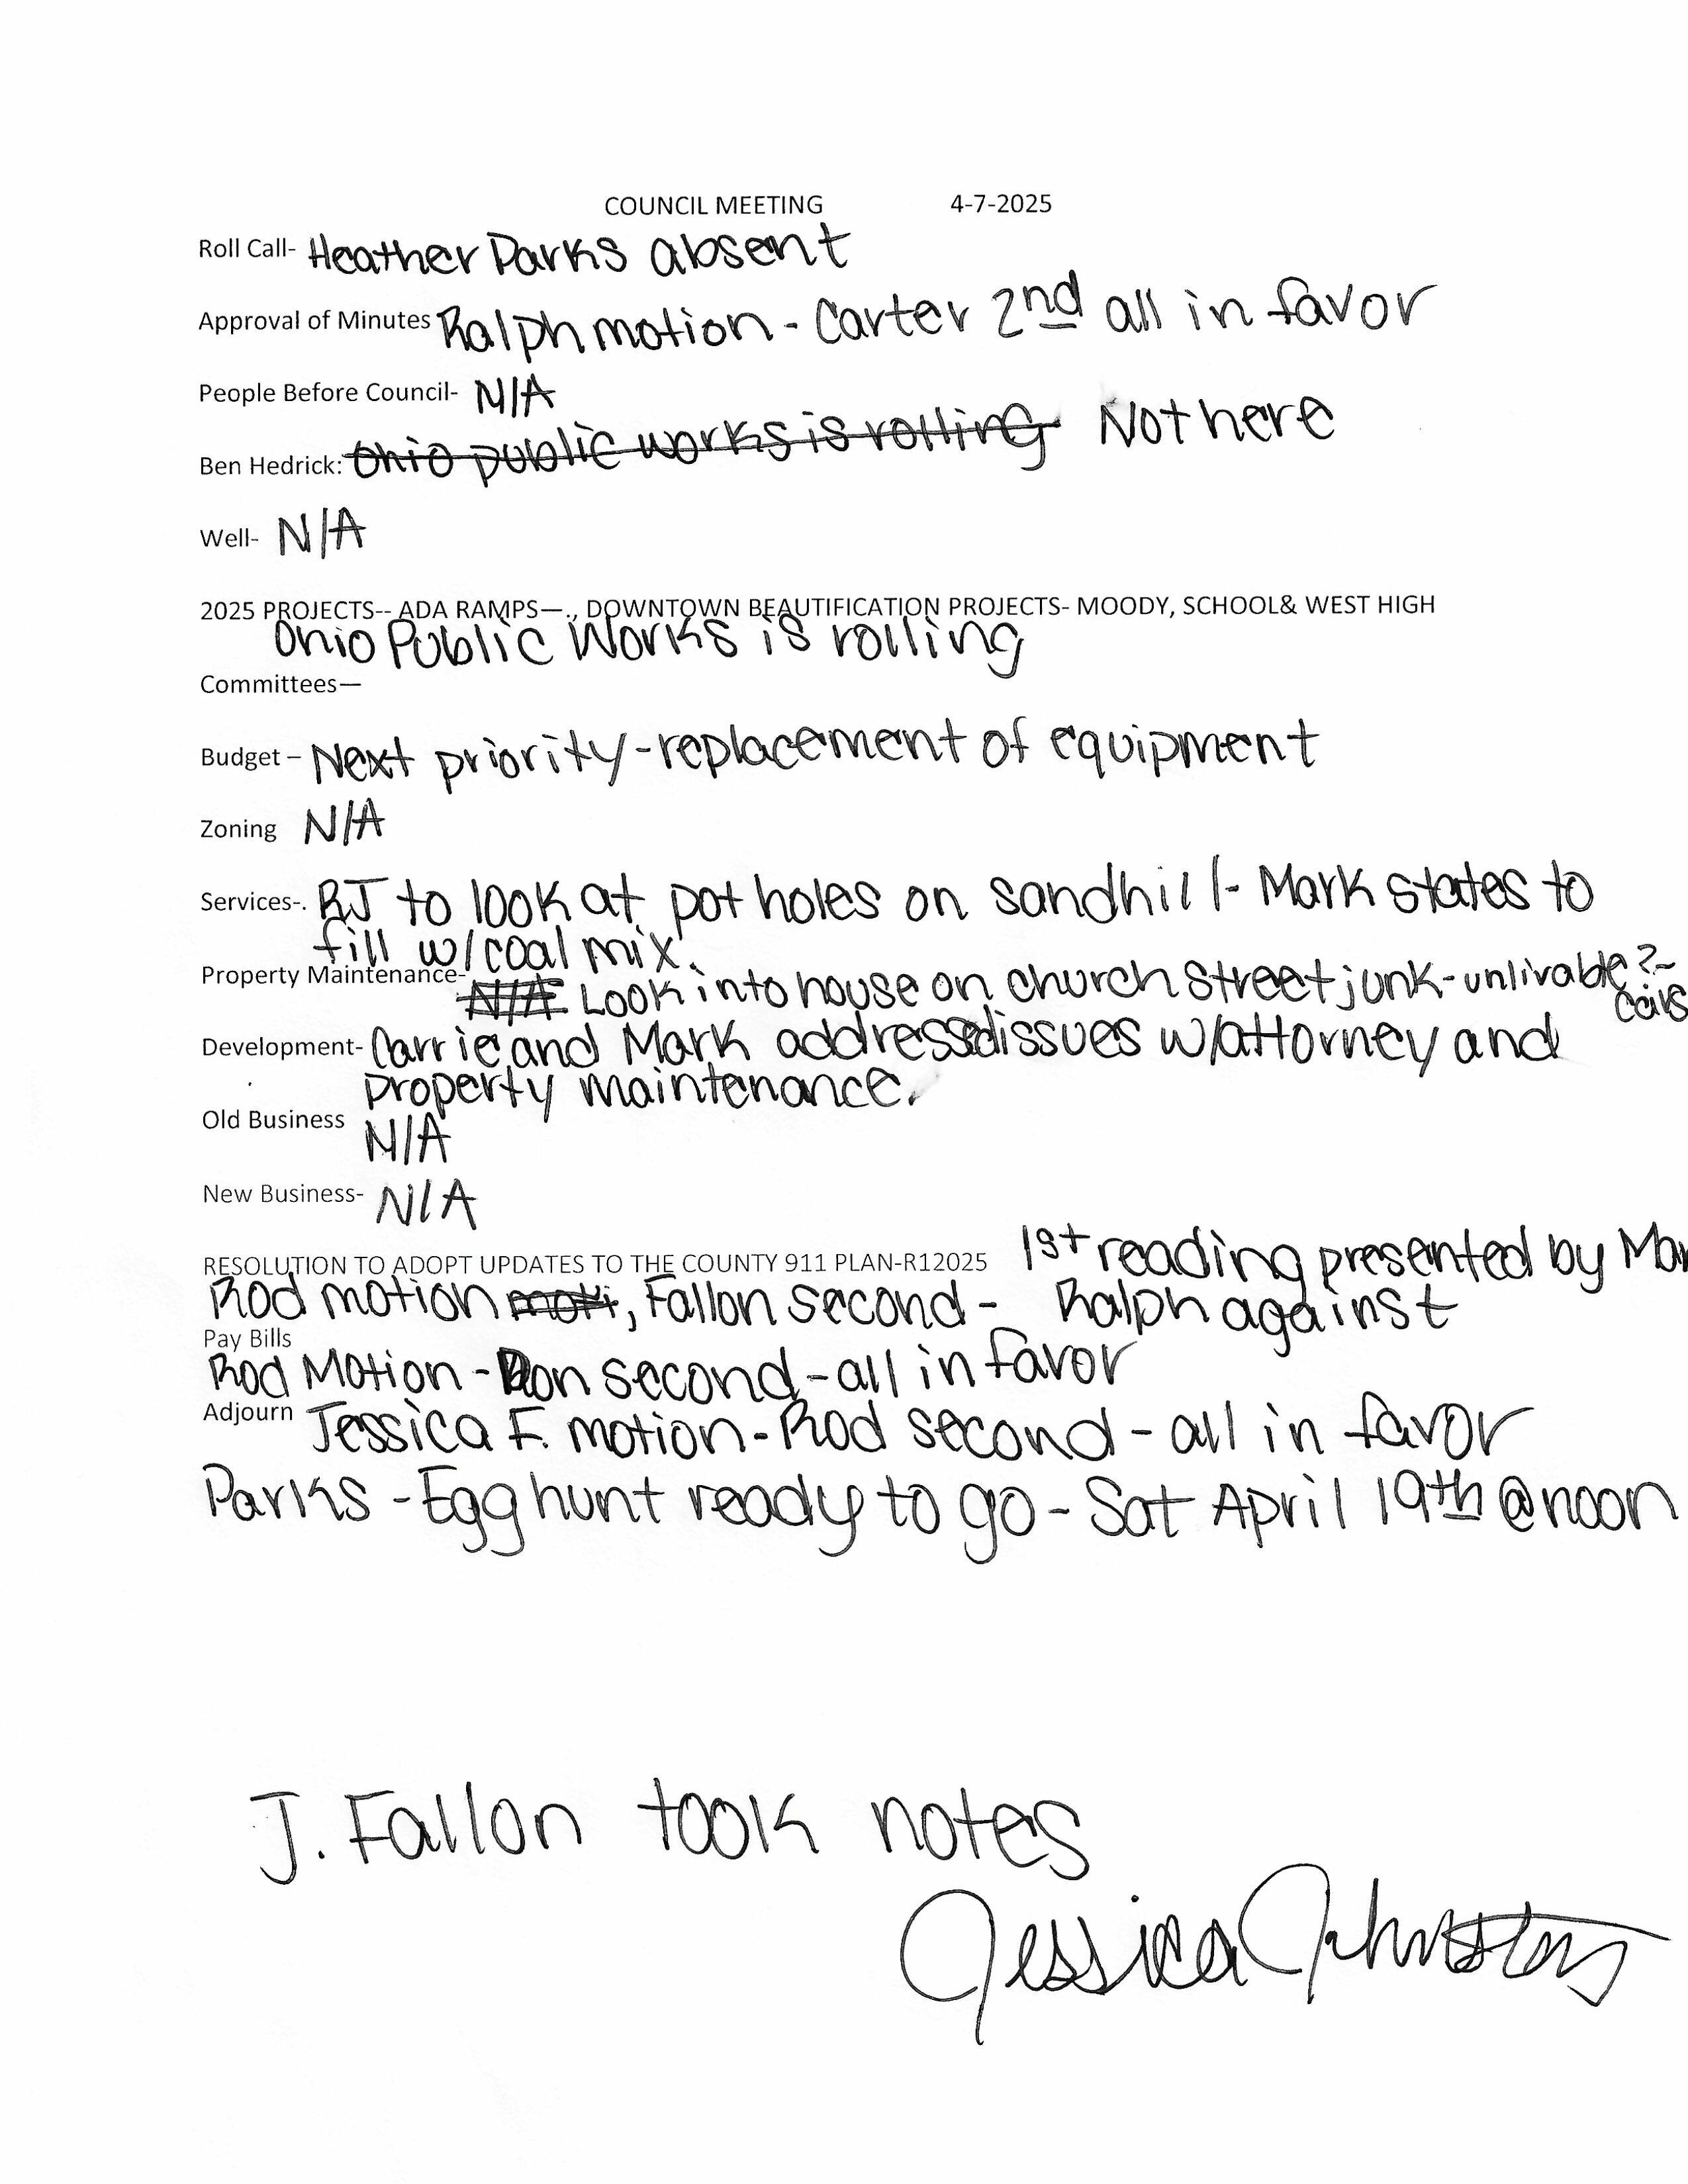 COUNCIL MEETING 4-7-2025
Roll Call- Heather Parks absent
Approval of Minutes Ralph motion - Carter 2nd all in favor
People Before Council- N/A
Ben Hedrick: Ohio public works is rolling Not here
Well- N/A
2025 PROJECTS-- ADA RAMPS—., DOWNTOWN BEAUTIFICATION PROJECTS- MOODY, SCHOOL& WEST HIGH
Ohio Public Works is rolling
Committees—
Budget – Next priority-replacement of equipment
Zoning N/A
Services-. RJ to look at pot holes on sandhill- Mark states to
fill w/coal mix.
Property Maintenance- N/A Look into house on church street junk-unlivable?-
cars
Development- Carrie and Mark addressed issues w/attorney and
property maintenance.
Old Business N/A
New Business- N/A
RESOLUTION TO ADOPT UPDATES TO THE COUNTY 911 PLAN-R12025 1st reading presented by Mar
Rod motion moti, Fallon second - Ralph against
Pay Bills
Rod Motion - Don second-all in favor
Adjourn Jessica F. motion-Rod second-all in favor
Parks -Egg hunt ready to go- Sat April 19th @noon
J. Fallon took notes
Jessica Johnston